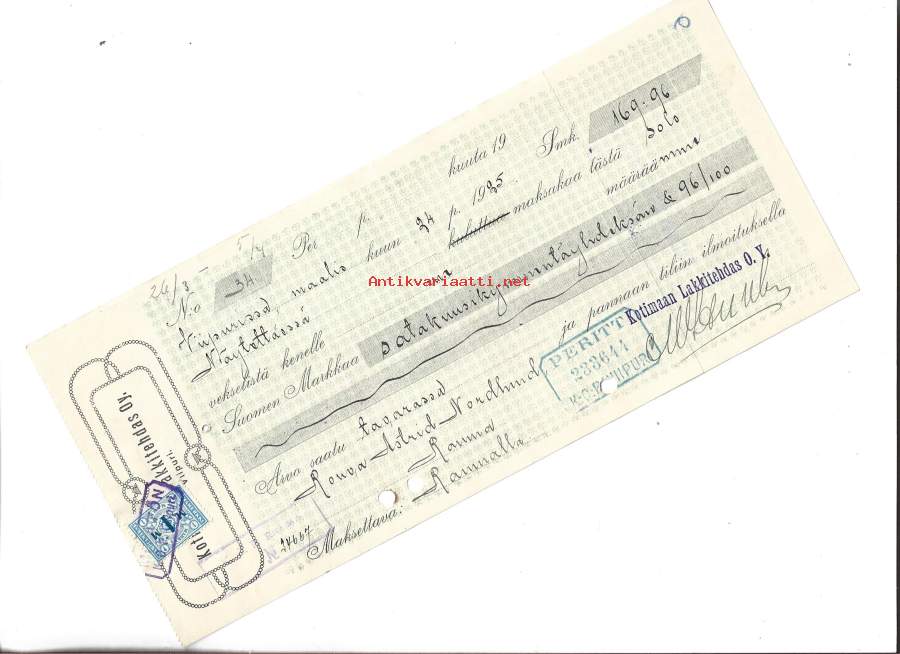 24/3 - 5/4
N:o 34 Per p. kuuta 19 Smk. 169.96
Viipurissa, maalis kuun 24 p. 1925.
Näytettäissä kuluttua maksakaa tästä Solo
vekselistä kenelle määräämme
Suomen Markkaa satakuusikymmentäyhdeksän & 96/100
Arvo saatu tavarassa ja pannaan tiliin ilmoituksella
Rouva Astrid Nordlund
Rauma
Maksettava: Raumalla
Kotimaan Lakkitehdas O. Y.
PERITT
233641
K.O.P. VIIPURI
24667
akkitehdas Oy.
Viipuri.
Koti
Antikvariaatti.net